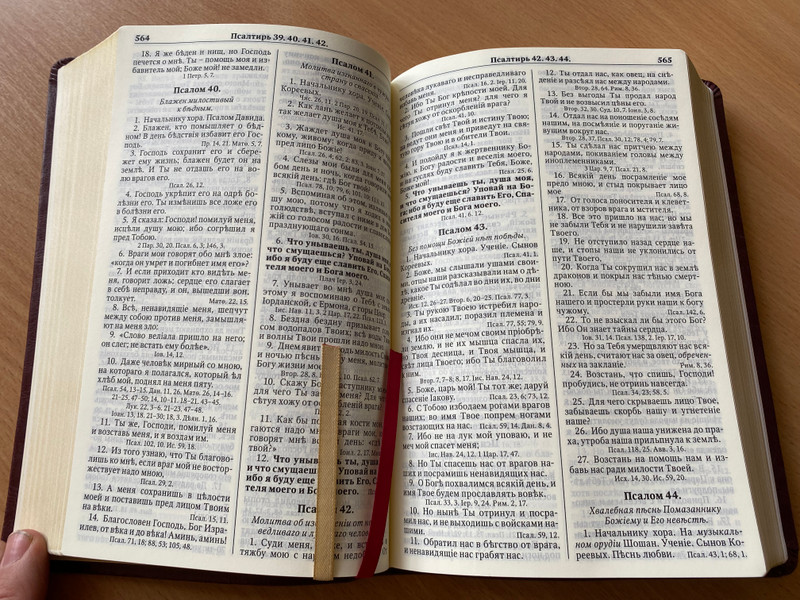 564
Псалтирь 39. 40. 41. 42.
18. Я же бѣден и нищ, но Господь
печется о мнѣ. Ты – помощь моя и из-
бавитель мой; Боже мой! не замедли.
1 Петр. 5, 7.
Псалом 40.
Блажен милостивый
к бѣдным.
1. Начальнику хора. Псалом Давида.
2. Блажен, кто помышляет о бѣд-
ном! В день бѣдствія избавит его Гос-
подь.
Пр. 14, 21. Матѳ. 5, 7.
3. Господь сохранит его и сбере-
жет ему жизнь; блажен будет он на
землѣ. И Ты не отдашь его на во-
лю врагов его.
Псал. 26, 12.
4. Господь укрѣпит его на одрѣ бо-
лѣзни его. Ты измѣнишь все ложе его
в болѣзни его.
5. Я сказал: Господи! помилуй меня,
исцѣли душу мою; ибо согрѣшил я
пред Тобою.
2 Пар. 30, 20. Псал. 6, 3; 146, 3.
6. Враги мои говорят обо мнѣ злое:
«когда он умрет и погибнет имя его»?
7. И если приходит кто видѣть ме-
ня, говорит ложь; сердце его слагает
в себѣ неправду, и он, вышедши вон,
толкует.
Матѳ. 22, 15.
8. Всѣ, ненавидящіе меня, шепчут
между собою против меня, замышля-
ют на меня зло:
9. «Слово веліала пришло на него;
он слег; не встать ему болѣе».
Іов. 14, 12.
10. Даже человѣк мирный со мною,
на котораго я полагался, который ѣл
хлѣб мой, поднял на меня пяту.
Псал. 54, 13–15. Дан. 11, 26. Матѳ. 26, 14–16.
21–25. 47–50; 14, 10–11. 18–21. 43–45.
Лук. 22, 3–6. 21–23. 47–48.
Іоан. 13, 18. 21–30; 18, 3. Дѣян. 1, 16.
11. Ты же, Господи, помилуй меня
и возставь меня, и я воздам им.
Псал. 102, 10. Ис. 59, 18.
12. Из того узнаю, что Ты благово-
лишь ко мнѣ, если враг мой не востор-
жествует надо мною;
Псал. 29, 2.
13. А меня сохранишь в цѣлости
моей и поставишь пред лицом Твоим
на вѣки.
Псал. 15, 11.
14. Благословен Господь, Бог Изра-
илев, от вѣка и до вѣка! Аминь, аминь!
Псал. 71, 18; 88, 53; 105, 48.
Псалом 41.
Молитва изгнаннаго
1. Начальнику хора.
Кореевых.
2. Как лань желает
так желает душа моя
3. Жаждет душа моя
кому, живому: когда
пред лицо Божіе!
4. Слезы мои были
бом день и ночь, когда
всякій день: «гдѣ Бог твой?»
5. Вспоминая об этом,
шу мою, потому что я ходил
голюдствѣ, вступал с ними
жій со гласом радости и славословія
празднующаго сонма.
6. Что унываешь ты, душа моя,
и что смущаешься? Уповай на Бога,
ибо я буду еще славить Его, Спаси-
теля моего и Бога моего.
7. Унывает во мнѣ душа моя;
этому я воспоминаю о Тебѣ с земли
Іорданской, с Ермона, с горы
8. Бездна бездну призывает
сом водопадов Твоих; всѣ воды
и волны Твои прошли надо мною.
9. Днем явит милость
и ночью пѣснь
Богу жизни моей.
10. Скажу Богу,
для чего Ты забыл меня? Для чего
сѣтуя хожу от оскорбленій врага?
11. Как бы
гаются надо мною враги мои,
говорят мнѣ всякій день: «гдѣ Бог
твой?»
12. Что унываешь ты, душа моя,
и что смущаешься? Уповай на Бога,
ибо я буду еще славить Его, Спаси-
теля моего и Бога моего.
Псалом 42.
Молитва об избавленіи от
1. Суди меня, Боже, и вступись в
тяжбу мою с народом недобрым.
Псалтирь 42. 43. 44.
565
человѣка лукаваго и несправедливаго
Псал. 16, 2. Іер. 11, 20.
2. Ибо Ты Бог крѣпости моей. Для
чего Ты отринул меня? для чего я
сѣтуя хожу от оскорбленій врага?
Псал. 41, 10.
3. Пошли свѣт Твой и истину Твою;
да ведут они меня и приведут на свя-
тую гору Твою и в обители Твои.
Псал. 14, 1.
4. И подойду я к жертвеннику Бо-
жію, к Богу радости и веселія моего,
и на гуслях буду славить Тебя, Боже,
Боже мой!
Псал. 25, 6.
5. Что унываешь ты, душа моя,
и что смущаешься? Уповай на Бо-
га; ибо я буду еще славить Его, Спа-
сителя моего и Бога моего.
Псал. 41, 6. 12.
Псалом 43.
Без помощи Божіей нѣт побѣды.
1. Начальнику хора. Ученіе. Сынов
Кореевых.
Псал. 41, 1.
2. Боже, мы слышали ушами свои-
ми, отцы наши разсказывали нам о дѣ-
лѣ, какое Ты содѣлал во дни их, во дни
древніе.
Исх. 12, 26–27. Втор. 6, 20–25. Псал. 77, 3.
3. Ты рукою Твоею истребил наро-
ды, а их насадил; поразил племена и
изгнал их.
Псал. 77, 55; 79, 9.
4. Ибо они не мечом своим пріобрѣ-
ли землю, и не их мышца спасла их,
но Твоя десница, и Твоя мышца, и
свѣт лица Твоего; ибо Ты благоволил
к ним.
Втор. 7, 7–8; 8, 17. Іис. Нав. 24, 12.
5. Боже, царь мой! Ты тот же; даруй
спасеніе Іакову.
Псал. 23, 6; 73, 12.
6. С Тобою избодаем рогами врагов
наших; во имя Твое попрем ногами
возстающих на нас.
Псал. 59, 14. Дан. 8, 4.
7. Ибо не на лук мой уповаю, и не
меч мой спасет меня;
Іис. Нав. 24, 12. 1 Цар. 17, 47.
8. Но Ты спасешь нас от врагов на-
ших и посрамишь ненавидящих нас.
9. О Богѣ похвалимся всякій день, и
имя Твое будем прославлять вовѣк.
Псал. 33, 3. Іер. 9, 24. Рим. 2, 17.
10. Но нынѣ Ты отринул и посра-
мил нас, и не выходишь с войсками на-
шими.
Псал. 59, 12.
11. Обратил нас в бѣгство от врага,
и ненавидящіе нас грабят нас.
12. Ты отдал нас, как овец, на снѣ-
деніе и разсѣял нас между народами.
Втор. 28, 64. Рим. 8, 36.
13. Без выгоды Ты продал народ
Твой и не возвысил цѣны его.
Втор. 32, 30. Суд. 10, 7. Іоил. 3, 8.
14. Отдал нас на поношеніе сосѣдям
нашим, на посмѣяніе и поруганіе жи-
вущим вокруг нас.
Втор. 28, 37. Псал. 30, 12; 78, 4; 79, 7.
15. Ты сдѣлал нас притчею между
народами, покиваніем головы между
иноплеменниками.
3 Цар. 9, 7. Псал. 21, 8.
16. Всякій день посрамленіе мое
предо мною, и стыд покрывает лице
мое
Псал. 68, 8.
17. От голоса поносителя и клевет-
ника, от взоров врага и мстителя.
18. Все это пришло на нас; но мы
не забыли Тебя и не нарушили завѣта
Твоего.
19. Не отступило назад сердце на-
ше, и стопы наши не уклонились от
пути Твоего,
20. Когда Ты сокрушил нас в землѣ
драконов и покрыл нас тѣнью смерт-
ною.
21. Если бы мы забыли имя Бога
нашего и простерли руки наши к богу
чужому,
Псал. 142, 6.
22. То не взыскал ли бы этого Бог?
Ибо Он знает тайны сердца.
Іов. 31, 14. Псал. 138, 2. Іер. 17, 10.
23. Но за Тебя умерщвляют нас вся-
кій день, считают нас за овец, обречен-
ных на закланіе.
Рим. 8, 36.
24. Возстань, что спишь, Господи!
пробудись, не отринь навсегда.
Псал. 34, 23; 58, 5.
25. Для чего скрываешь лице Твое,
забываешь скорбь нашу и угнетеніе
наше?
26. Ибо душа наша унижена до пра-
ха, утроба наша прильпнула к землѣ.
Псал. 118, 25. Авв. 3, 16.
27. Возстань на помощь нам и из-
бавь нас ради милости Твоей.
Исх. 14, 30. Ис. 59, 20.
Псалом 44.
Хвалебная пѣснь Помазаннику
Божіему и Его невѣстѣ.
1. Начальнику хора. На музыкаль-
ном орудіи Шошан. Ученіе. Сынов Ко-
реевых. Пѣснь любви.
Псал. 43, 1; 68, 1.